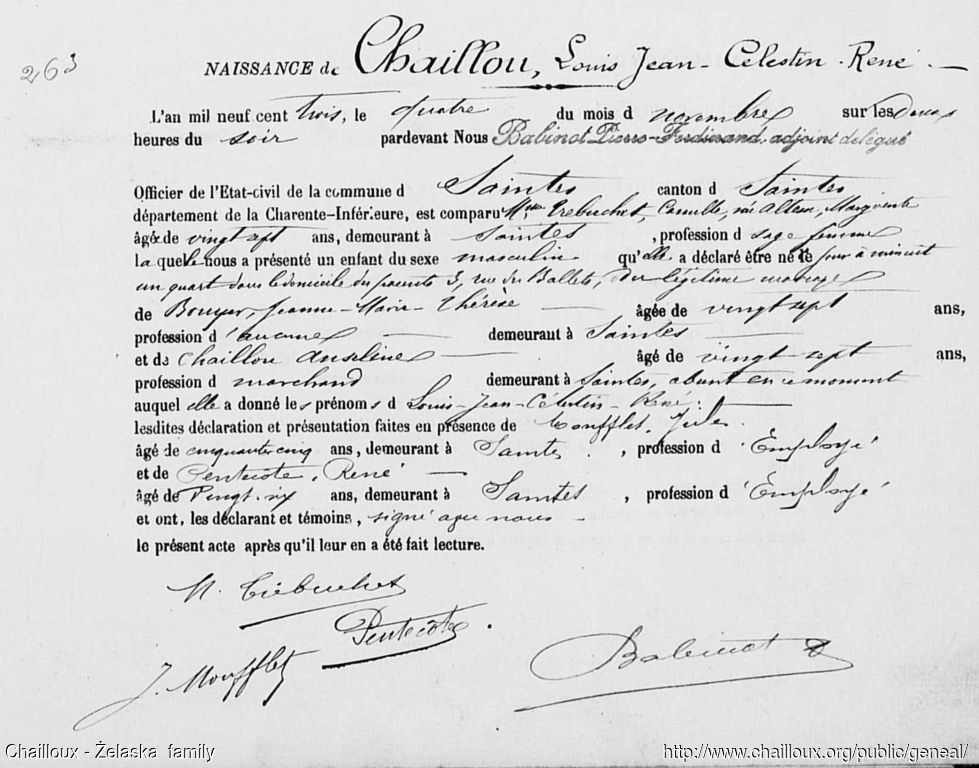 263
NAISSANCE de Chaillou, Louis Jean-Célestin-René
L'an mil neuf cent trois, le quatre du mois d novembre sur les deux
heures du soir pardevant Nous Babinot Pierre-Ferdinand, adjoint délégué
Officier de l'Etat-civil de la commune d Saintes canton d Saintes
département de la Charente-Inférieure, est comparu Trebuchet, Camille, née Marguerite
âgée de vingt sept ans, demeurant à Saintes, profession d sage femme
laquelle nous a présenté un enfant du sexe masculin qu'elle a déclaré être né le jour à minuit
un quart dans le domicile des parents 3, rue des Ballets, du légitime mariage
de Bouyer, Jeanne-Marie-Thérèse âgée de vingt sept ans,
profession d'aucune demeurant à Saintes
et de Chaillou Anselme âgé de vingt-sept ans,
profession d marchand demeurant à Saintes, absent en ce moment
auquel elle a donné les prénoms d Louis-Jean-Célestin-René.
lesdites déclaration et présentation faites en présence de Moufflet, Jules
âgé de cinquante cinq ans, demeurant à Saintes, profession d'Employé
et de Pentecôte, René
âgé de Vingt-six ans, demeurant à Saintes, profession d'Employé
et ont, les déclarant et témoins, signé avec nous
le présent acte après qu'il leur en a été fait lecture.
M. Trébuchet
Pentecôte
J. Moufflet
Babinot
Chailloux - Želaska family
http://www.chailloux.org/public/geneal/